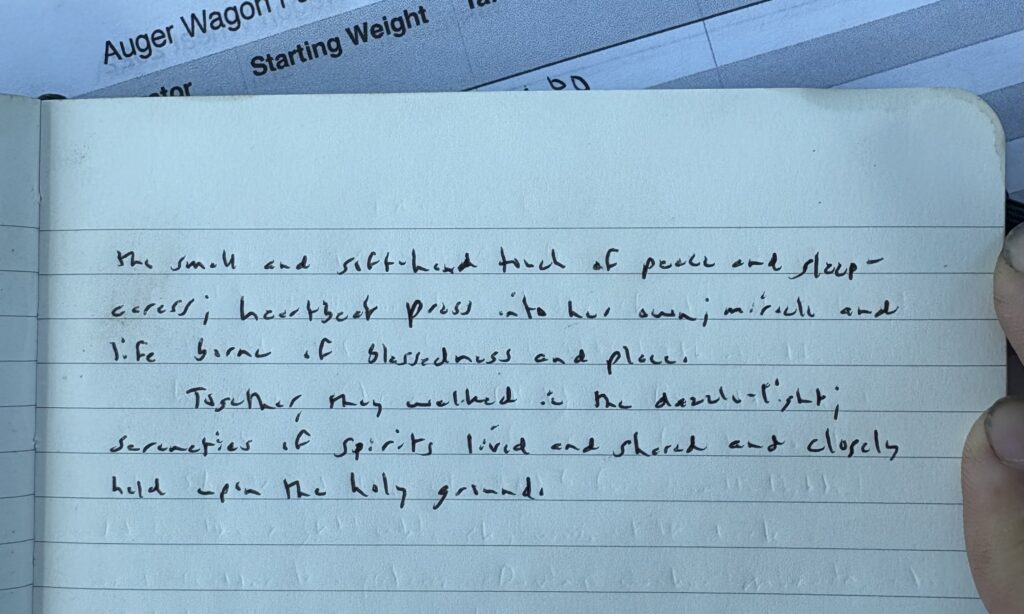 Auger Wagon
Starting Weight
the small and soft-hand touch of peace and sleep-
caress; heartbeat press into her own; miracle and
life borne of blessedness and place.
Together, they walked in the dazzle-light;
sereneties of spirits lived and shared and closely
held upon the holy ground.